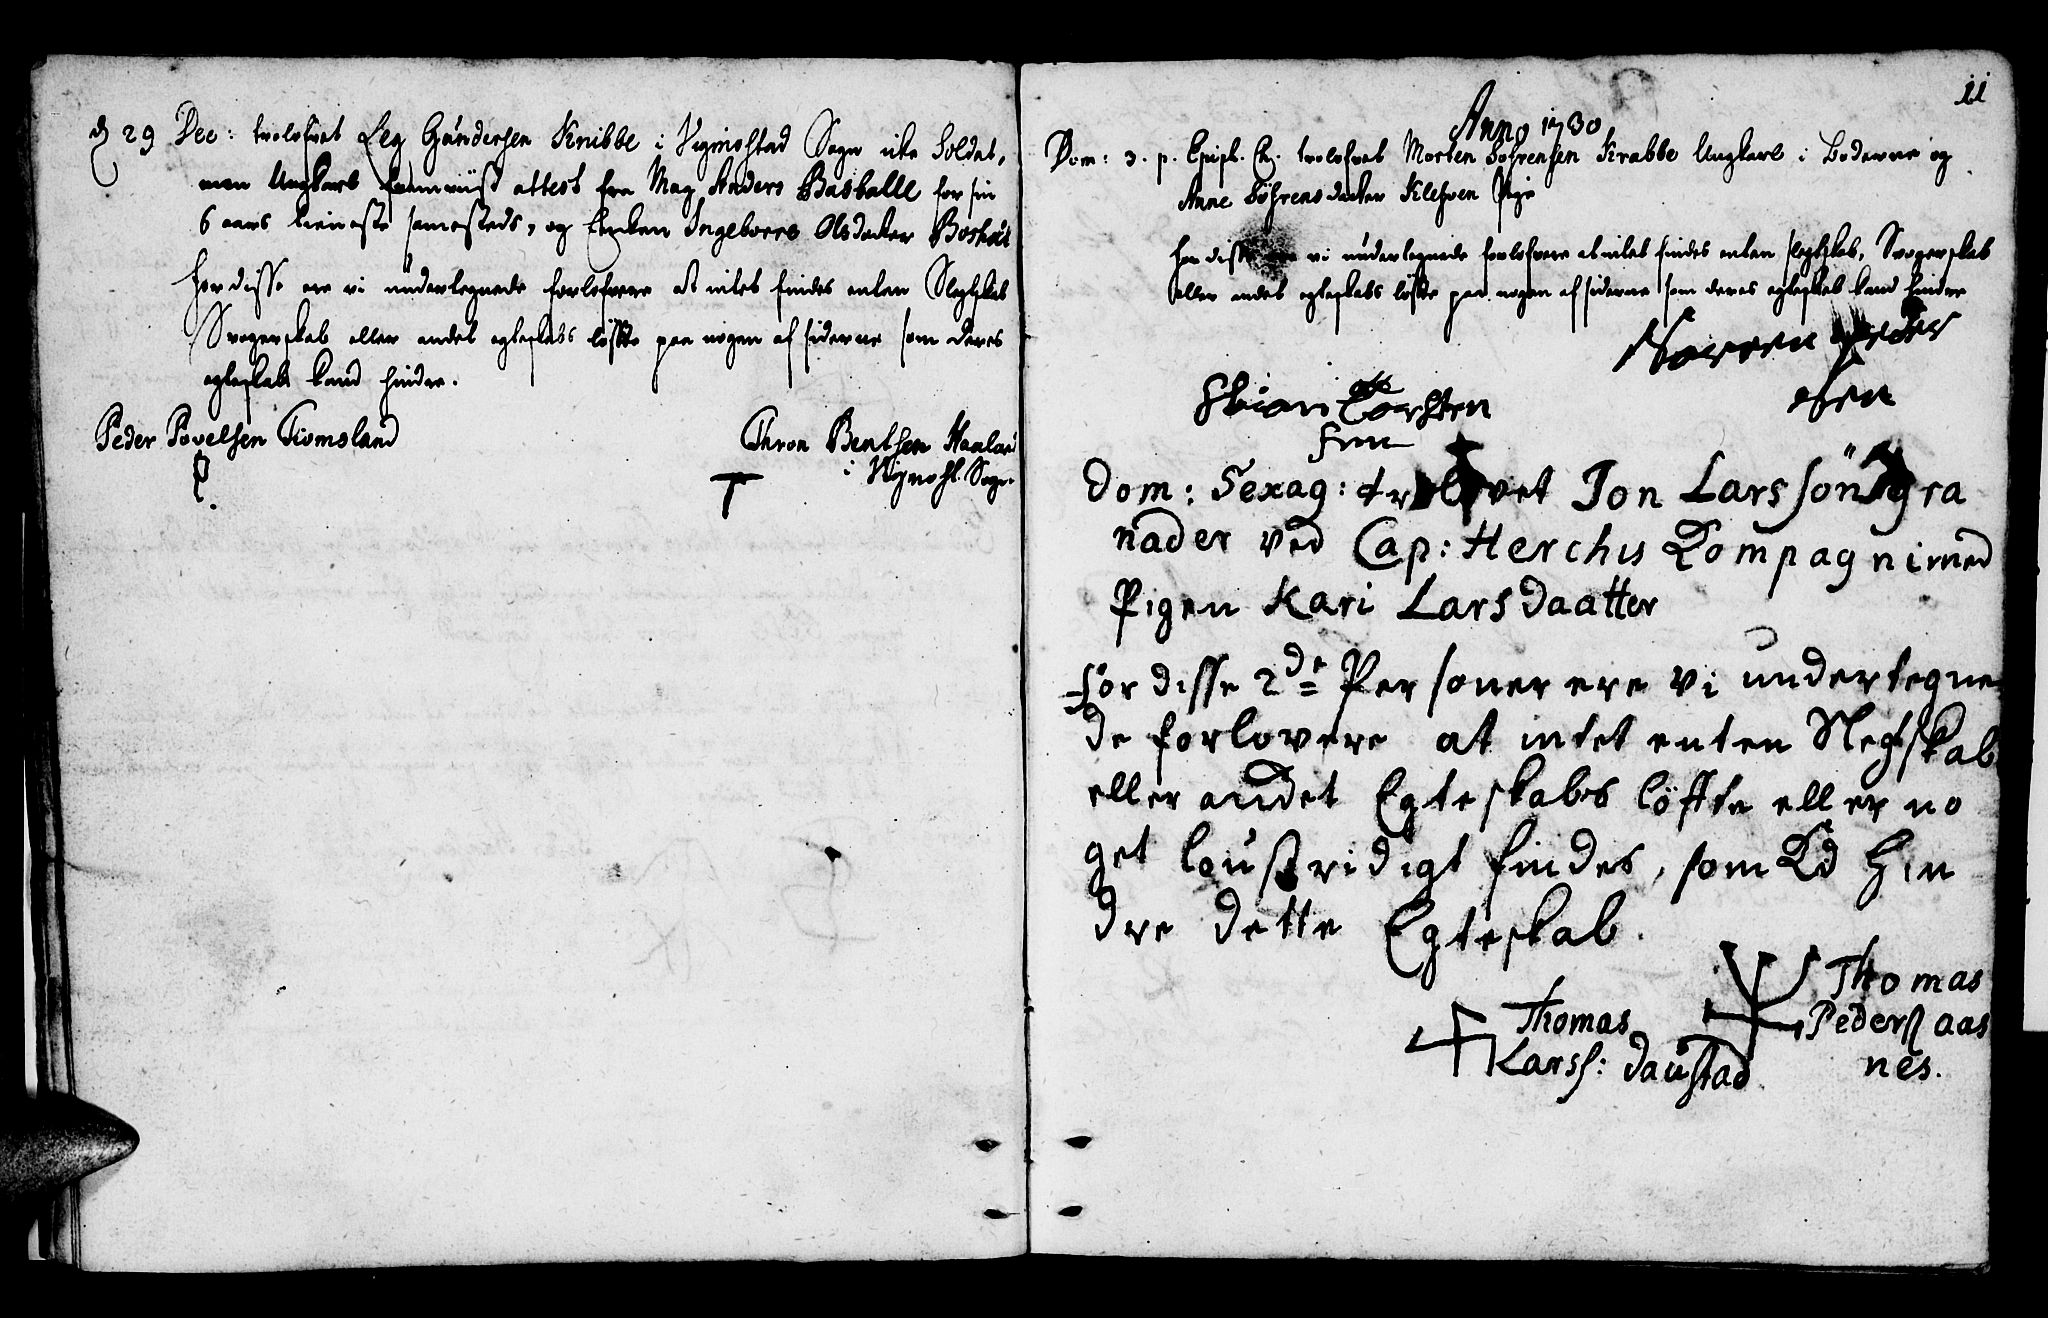 d 29 Dec: trolofvet Leg Gundersen Knibbe i Vigmostad Sogn icke Soldat,
men Ungkarl fremviist attest fra Mag Anders Basballe for sin
6 aars tieneste samesteds, og Enken Ingeborre Olsdatter
For disse ere vi undertegnede forlofvere at intet findes enten Slegtskab
Svogerskab eller andet egteskabs löfte paa nogen af siderne som deres
egteskab kand hindre.
Peder Povelsen Tiomsland
Thron Benthsen Haaland
i Vigmost. Sogn
11
Anno 1730
Dom: 3. p. Epiph. trolofvet Morten Söhrensen Krabbe Ungkarl i Boderne og
Anne Söhrensdatter Klefven Pige
For disse ere vi undertegnede forlofvere at intet findes enten slegtskab, Svogerskab
eller andet egteskabs löfte paa nogen af siderne som deres egteskab kand hindre
Sören Peder
sen
Torsten
sen
Dom: Sexag: trolovet Jon Larssön gra
nader ved Cap: Herchis Kompagni med
Pigen Kari Larsdaatter
For disse 2de Personer ere vi undertegne
de forlovere at intet enten Slegtskab
eller andet Egteskabs löfte eller no
get loustridigt findes, som Kd hin
dre dette Egteskab.
Thomas
Pederss aas
nes.
Thomas
Larss: Daustad